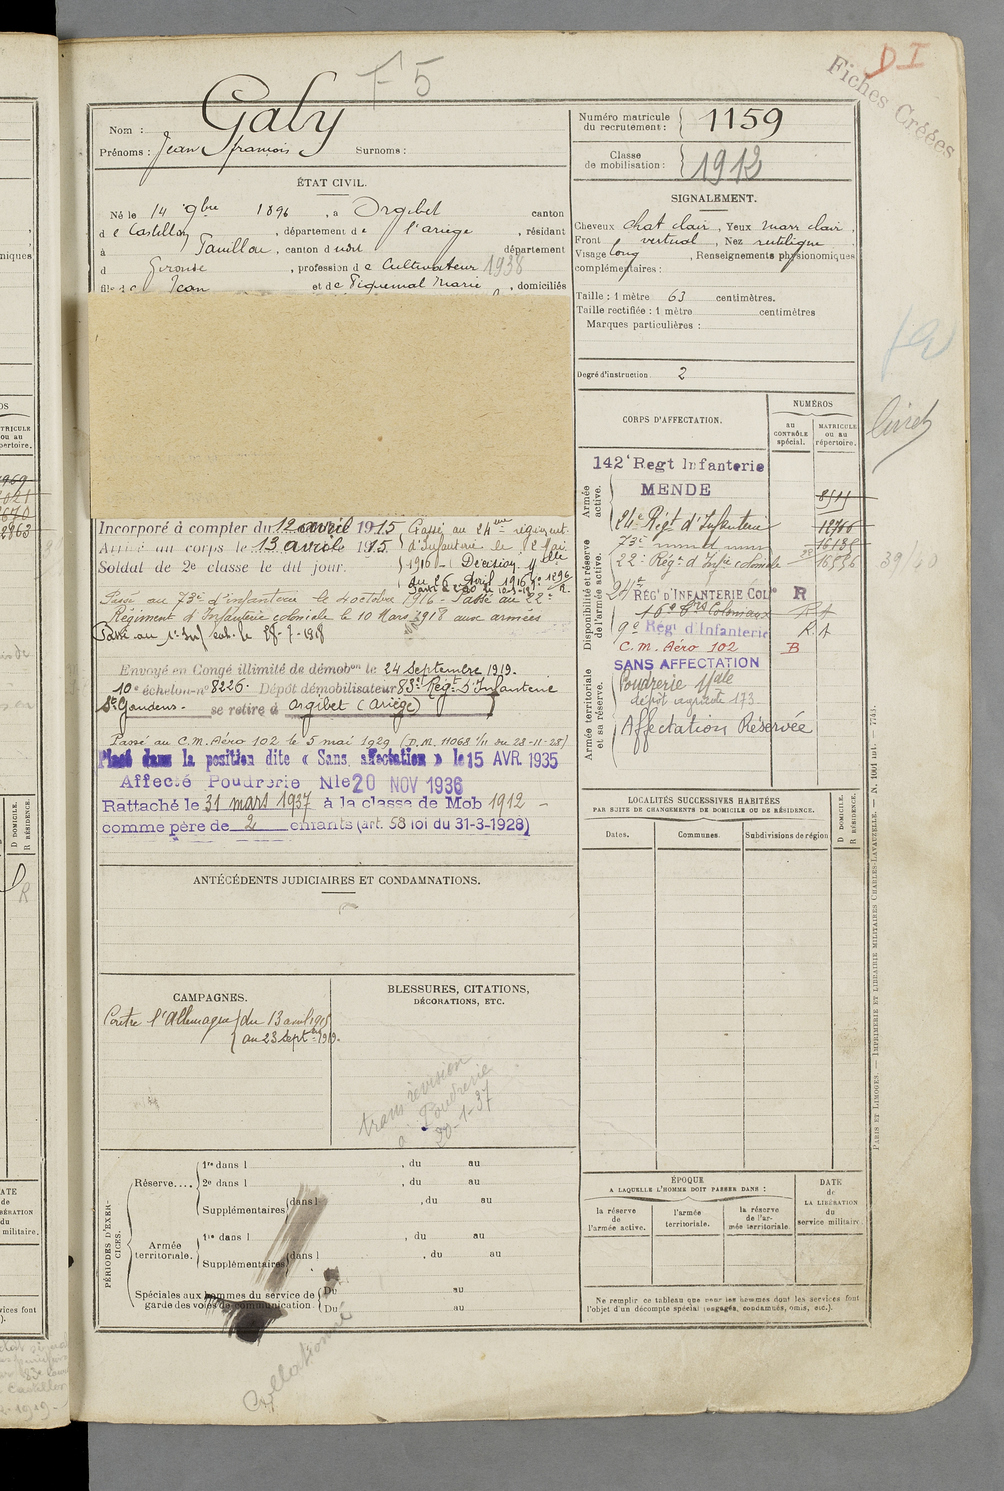 F5
DI
Fiches Créées
Nom : Galy
Prénoms : Jean françois Surnoms :
Numéro matricule du recrutement : 1159
Classe de mobilisation : 1912
ÉTAT CIVIL.
Né le 14 9bre 1896, à Orgibet canton
de Castillon, département de l'ariège, résidant
à Tauillou, canton d département
d Gironde, profession de Cultivateur 1938
fils de Jean et de Piquemal Marie, domiciliés
SIGNALEMENT.
Cheveux chat clair, Yeux marr clair,
Front vertical, Nez rectiligne
Visage long, Renseignements physionomiques
complémentaires :
Taille : 1 mètre 63 centimètres.
Taille rectifiée : 1 mètre centimètres
Marques particulières :
Degré d'instruction 2
livret
CORPS D'AFFECTATION.
NUMÉROS
au CONTRÔLE spécial.
MATRICULE ou au répertoire.
Armée active.
142e Regt Infanterie
MENDE
24e Régt d'Infanterie 12766
73e
22e Régt d'Infie coloniale 16556
Disponibilité et réserve de l'armée active.
24e RÉGt D'INFANTERIE COLe R
16e Coloniaux R.A
9e Regt d'Infanterie R.A
C.M. Aéro 102 B
39/40
Armée territoriale et sa réserve.
SANS AFFECTATION
Poudrerie Nale
dépot 173
Affectation Réservée
Incorporé à compter du 12 avril 1915
Arrivé au corps le 13 avril 1915.
Soldat de 2e classe le dit jour.
Passé au 24eme régiment
d'Infanterie le 12 Mai
1916 - Décision Melle
du 26 Avril 1916 no 1296
Passé au 73e d'infanterie le 4 octobre 1916 - Passé au 22e
Régiment d'Infanterie coloniale le 10 Mars 1918 aux armées
Envoyé en Congé illimité de démobon le 24 Septembre 1919.
10e échelon - no 8226. Dépôt démobilisateur 83e Régt d'Infanterie
St Gaudens. se retire à orgibet (Ariège)
Passé au C.M. Aéro 102 le 5 mai 1929 (D.M. 11068 1/11 du 28-11-28)
Placé dans la position dite « Sans affectation » le 15 AVR. 1935
Affecté Poudrerie Nle 20 NOV 1936
Rattaché le 31 mars 1937 à la classe de Mob 1912 -
comme père de 2 enfants (art. 58 loi du 31-3-1928)
ANTÉCÉDENTS JUDICIAIRES ET CONDAMNATIONS.
LOCALITÉS SUCCESSIVES HABITÉES
PAR SUITE DE CHANGEMENTS DE DOMICILE OU DE RÉSIDENCE.
Dates. Communes. Subdivisions de région
D DOMICILE.
R RÉSIDENCE.
CAMPAGNES.
Contre l'Allemagne du 13 avril 1915
au 23 Septbre 1919.
BLESSURES, CITATIONS,
DÉCORATIONS, ETC.
trans révision
à Poudrerie
30-1-37
PÉRIODES D'EXERCICES.
Réserve....
1re dans l , du au
2e dans l , du au
Supplémentaires dans l , du au
Armée territoriale.
1re dans l , du au
Supplémentaires dans l , du au
Spéciales aux hommes du service de garde des voies de communication.
Du au
Du au
ÉPOQUE
A LAQUELLE L'HOMME DOIT PASSER DANS :
la réserve de l'armée active.
l'armée territoriale.
la réserve de l'armée territoriale.
DATE
DE LA LIBÉRATION
du service militaire.
Ne remplir ce tableau que pour les hommes dont les services font
l'objet d'un décompte spécial (engagés, condamnés, omis, etc.).
Collationné
PARIS ET LIMOGES. — IMPRIMERIE ET LIBRAIRIE MILITAIRES CHARLES-LAVAUZELLE.